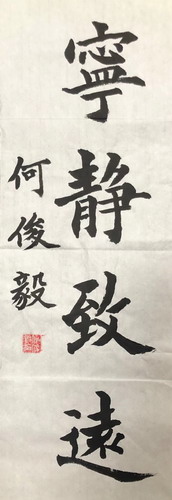 寧静致遠
何俊毅